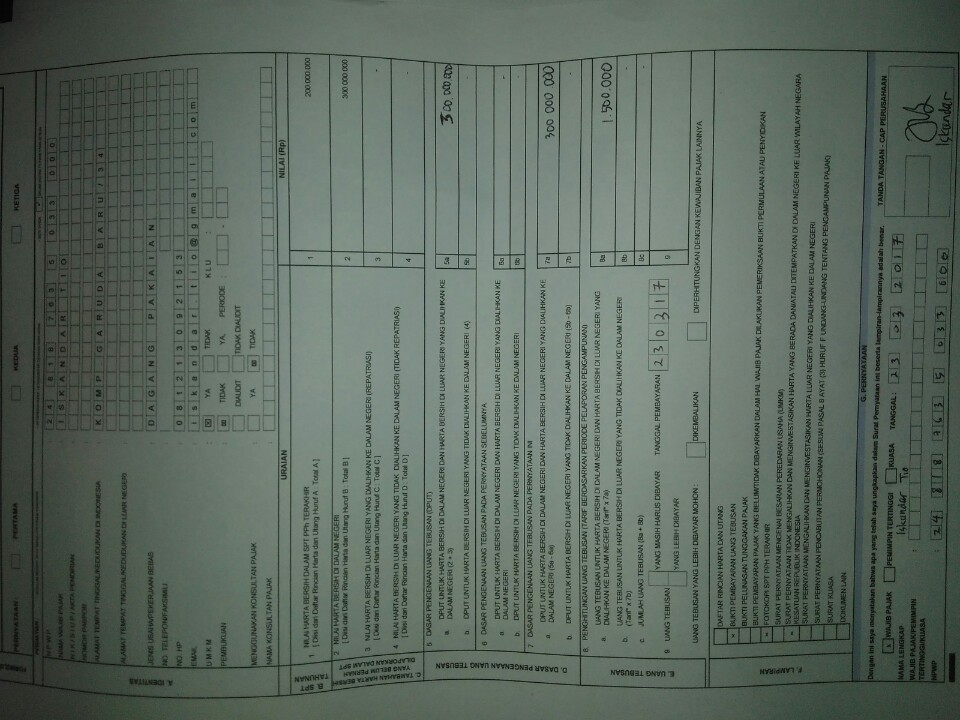 PERNYATAAN PERTAMA KEDUA KETIGA
A. IDENTITAS
NPWP : 24 818 763 5 033 000
NAMA WAJIB PAJAK : ISKANDAR TIO
NOMOR PASPOR
ALAMAT TEMPAT TINGGAL/KEDUDUKAN DI INDONESIA : KOMP GARUDA BARU/34
ALAMAT TEMPAT TINGGAL/KEDUDUKAN DI LUAR NEGERI
JENIS USAHA/PEKERJAAN BEBAS : DAGANG PAKAIAN
NO. TELEPON/FAKSIMILI
NO. HP : 081213092153
EMAIL : iskandarrtio@gmail.com
UMKM : YA TIDAK KLU :
PEMBUKUAN : TIDAK YA, PERIODE : -
DIAUDIT TIDAK DIAUDIT
MENGGUNAKAN KONSULTAN PAJAK : YA TIDAK
NAMA KONSULTAN PAJAK
URAIAN NILAI (Rp)
B. SPT TAHUNAN
1 NILAI HARTA BERSIH DALAM SPT PPH TERAKHIR 1 200 000 000
[ Diisi dari Daftar Rincian Harta dan Utang Huruf A : Total A ]
C. TAMBAHAN HARTA BERSIH YANG BELUM PERNAH DILAPORKAN DALAM SPT
2 NILAI HARTA BERSIH DI DALAM NEGERI 2 300 000 000
[ Diisi dari Daftar Rincian Harta dan Utang Huruf B : Total B ]
3 NILAI HARTA BERSIH DI LUAR NEGERI YANG DIALIHKAN KE DALAM NEGERI (REPATRIASI) 3 -
[ Diisi dari Daftar Rincian Harta dan Utang Huruf C : Total C ]
4 NILAI HARTA BERSIH DI LUAR NEGERI YANG TIDAK DIALIHKAN KE DALAM NEGERI (TIDAK REPATRIASI) 4 -
[ Diisi dari Daftar Rincian Harta dan Utang Huruf D : Total D ]
D. DASAR PENGENAAN UANG TEBUSAN
5 DASAR PENGENAAN UANG TEBUSAN (DPUT)
a. DPUT UNTUK HARTA BERSIH DI DALAM NEGERI DAN HARTA BERSIH DI LUAR NEGERI YANG DIALIHKAN KE DALAM NEGERI (2 + 3) 5a 300.000.000
b. DPUT UNTUK HARTA BERSIH DI LUAR NEGERI YANG TIDAK DIALIHKAN KE DALAM NEGERI (4) 5b -
6 DASAR PENGENAAN UANG TEBUSAN PADA PERNYATAAN SEBELUMNYA
a. DPUT UNTUK HARTA BERSIH DI DALAM NEGERI DAN HARTA BERSIH DI LUAR NEGERI YANG DIALIHKAN KE DALAM NEGERI 6a -
b. DPUT UNTUK HARTA BERSIH DI LUAR NEGERI YANG TIDAK DIALIHKAN KE DALAM NEGERI 6b -
7 DASAR PENGENAAN UANG TEBUSAN PADA PERNYATAAN INI
a DPUT UNTUK HARTA BERSIH DI DALAM NEGERI DAN HARTA BERSIH DI LUAR NEGERI YANG DIALIHKAN KE DALAM NEGERI (5a - 6a) 7a 300 000 000
b. DPUT UNTUK HARTA BERSIH DI LUAR NEGERI YANG TIDAK DIALIHKAN KE DALAM NEGERI (5b - 6b) 7b -
E. UANG TEBUSAN
8 PENGHITUNGAN UANG TEBUSAN (TARIF BERDASARKAN PERIODE PELAPORAN PENGAMPUNAN)
a. UANG TEBUSAN UNTUK HARTA BERSIH DI DALAM NEGERI DAN HARTA BERSIH DI LUAR NEGERI YANG DIALIHKAN KE DALAM NEGERI (Tarif* x 7a) 8a 1.500.000
b. UANG TEBUSAN UNTUK HARTA BERSIH DI LUAR NEGERI YANG TIDAK DIALIHKAN KE DALAM NEGERI (Tarif* x 7b) 8b -
c JUMLAH UANG TEBUSAN (8a + 8b) 8c
9 UANG TEBUSAN YANG MASIH HARUS DIBAYAR TANGGAL PEMBAYARAN 230317 9
YANG LEBIH DIBAYAR
UANG TEBUSAN YANG LEBIH DIBAYAR MOHON DIKEMBALIKAN DIPERHITUNGKAN DENGAN KEWAJIBAN PAJAK LAINNYA
F. LAMPIRAN
DAFTAR RINCIAN HARTA DAN UTANG
BUKTI PEMBAYARAN UANG TEBUSAN
BUKTI PELUNASAN TUNGGAKAN PAJAK
BUKTI PEMBAYARAN PAJAK YANG BELUM/TIDAK DIBAYARKAN DALAM HAL WAJIB PAJAK DILAKUKAN PEMERIKSAAN BUKTI PERMULAAN ATAU PENYIDIKAN
FOTOKOPI SPT PPH TERAKHIR
SURAT PERNYATAAN MENGENAI BESARAN PEREDARAN USAHA (UMKM)
SURAT PERNYATAAN TIDAK MENGALIHKAN DAN MENGINVESTASIKAN HARTA YANG BERADA DAN/ATAU DITEMPATKAN DI DALAM NEGERI KE LUAR WILAYAH NEGARA KESATUAN REPUBLIK INDONESIA
SURAT PERNYATAAN MENGALIHKAN DAN MENGINVESTASIKAN HARTA LUAR NEGERI YANG DIALIHKAN KE DALAM NEGERI
SURAT PERNYATAAN PENCABUTAN PERMOHONAN (SESUAI PASAL 8 AYAT (3) HURUF F UNDANG-UNDANG TENTANG PENGAMPUNAN PAJAK)
SURAT KUASA
DOKUMEN LAIN
G. PERNYATAAN
Dengan ini saya menyatakan bahwa apa yang telah saya ungkapkan dalam Surat Pernyataan ini beserta lampiran-lampirannya adalah benar.
x WAJIB PAJAK PEMIMPIN TERTINGGI KUASA TANGGAL : 23 - 03 2017 TANDA TANGAN - CAP PERUSAHAAN
NAMA LENGKAP : Iskandar Tio
WAJIB PAJAK/PEMIMPIN TERTINGGI/KUASA
NPWP : 24 818 763 5 033 000
Iskandar